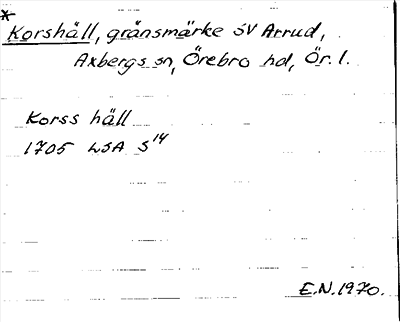 *
Korshäll, gränsmärke SV Arrud,
Axbergs sn, Örebro hd, Ör. l.
Korss häll
1705 LSA S¹⁴
E.N. 1970.